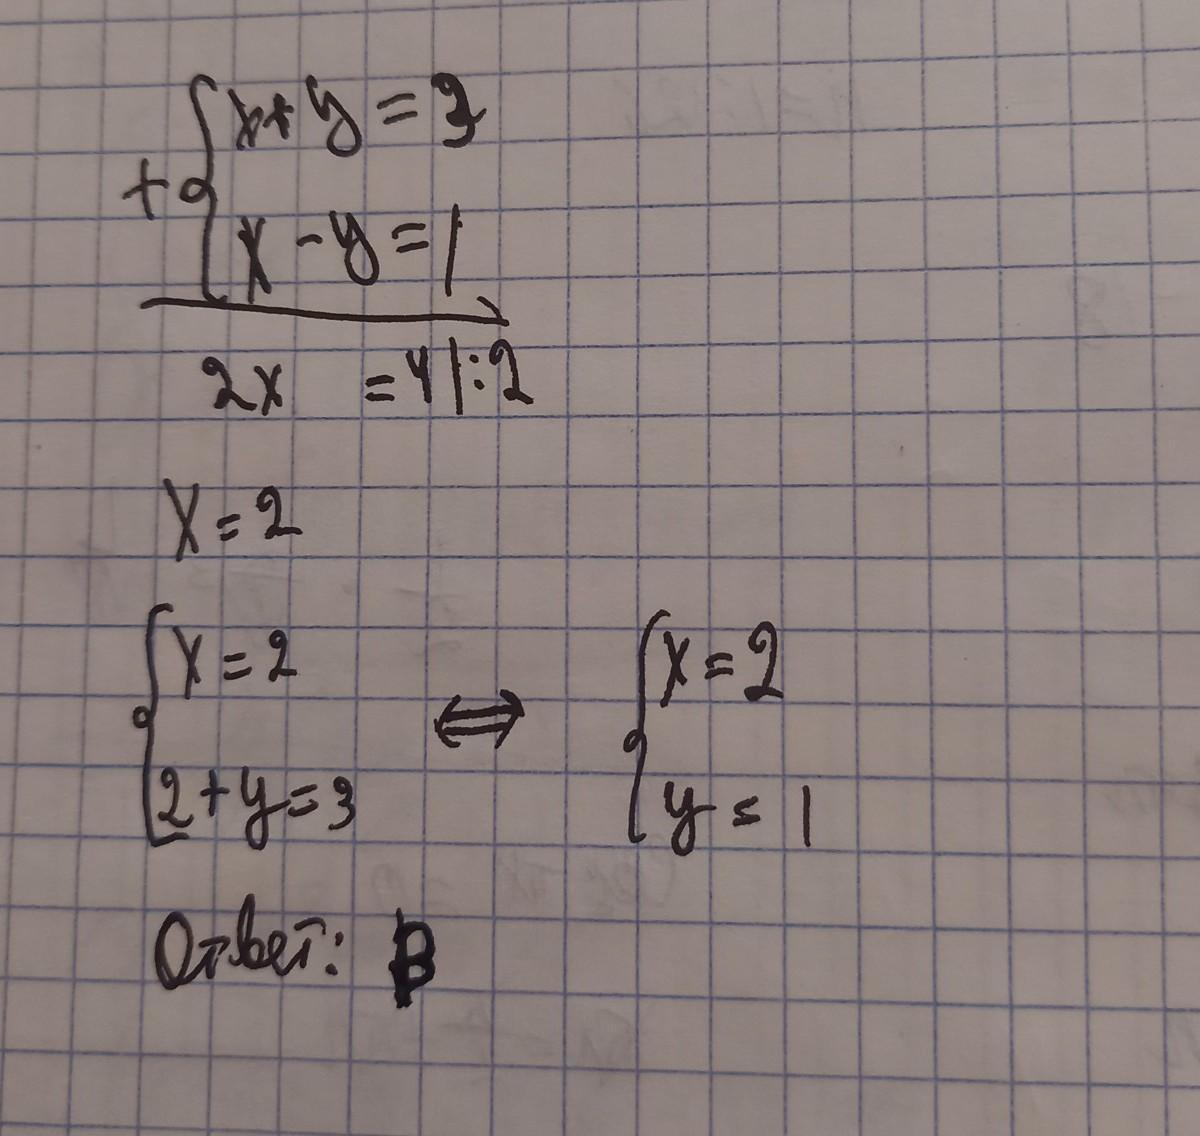 + { x + y = 3
x - y = 1
2x = 4 | : 2
x = 2
{ x = 2
2 + y = 3
⇔
{ x = 2
y = 1
Ответ: В